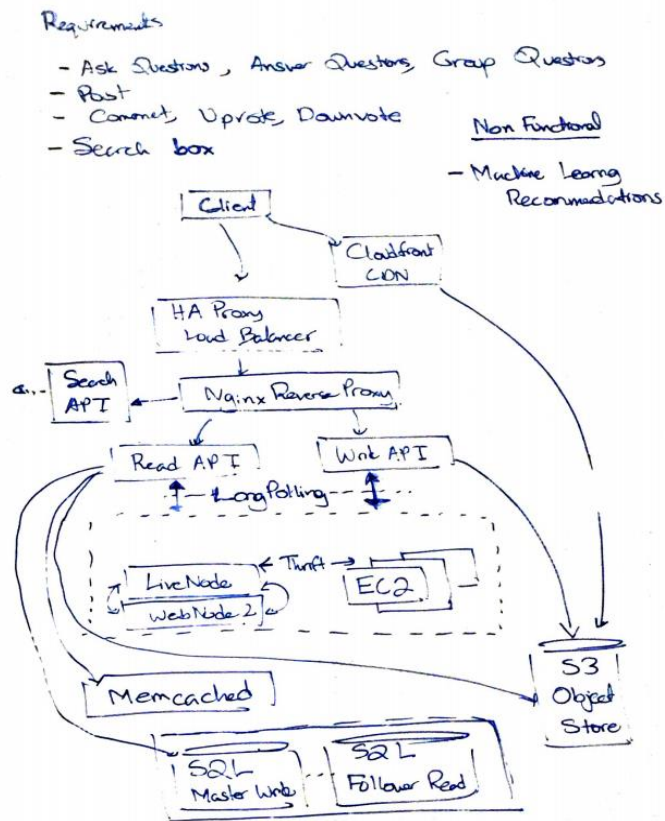 Requirements
- Ask Questions, Answer Questions, Group Questions
- Post
- Comment, Upvote, Downvote
- Search box
Non Functional
- Machine Learning
Recommedations
Client
Cloudfront
CDN
HA Proxy
Load Balancer
Search
API
Nginx Reverse Proxy
Read API
Write API
Long Polling
Thrift
LiveNode
WebNode 2
EC2
Memcached
S3
Object
Store
SQL
Master Write
SQL
Follower Read